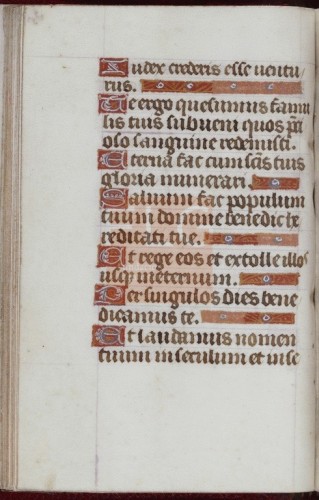 Iudex crederis esse ventu
rus.
Te ergo quesumus famu
lis tuis subveni quos p̄ti
oso sanguine redemisti.
Eterna fac cum sc̄is tuis
gloria munerari.
Salvum fac populum
tuum domine benedic he
reditati tue.
Et rege eos et extolle illos
usq; ineternum.
Per singulos dies bene
dicamus te.
Et laudamus nomen
tuum in seculum et in se